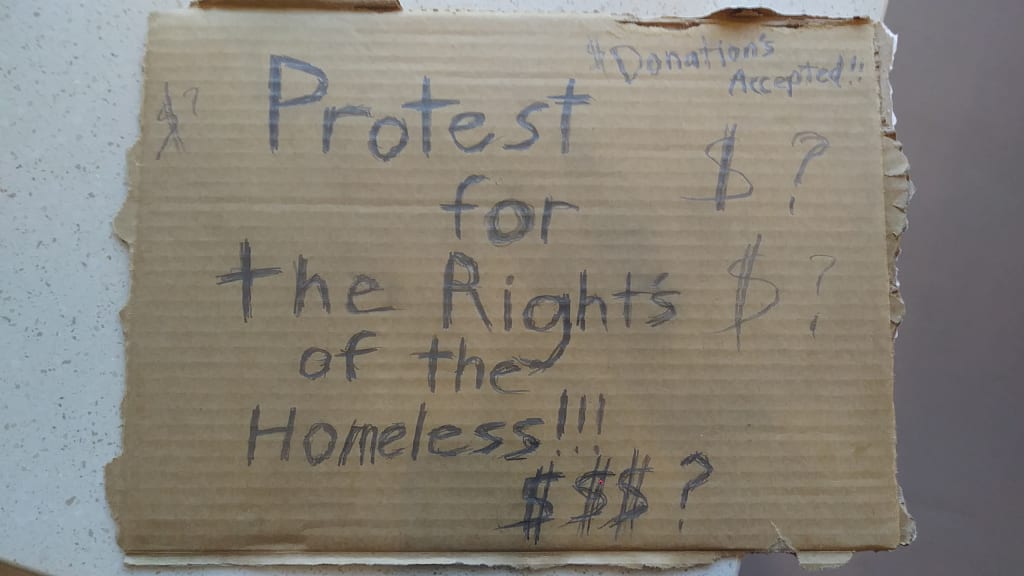 $Donation's
Accepted!!
$?
Protest
$ ?
for
the Right's
$ ?
of the
Homeless!!!
$$$?